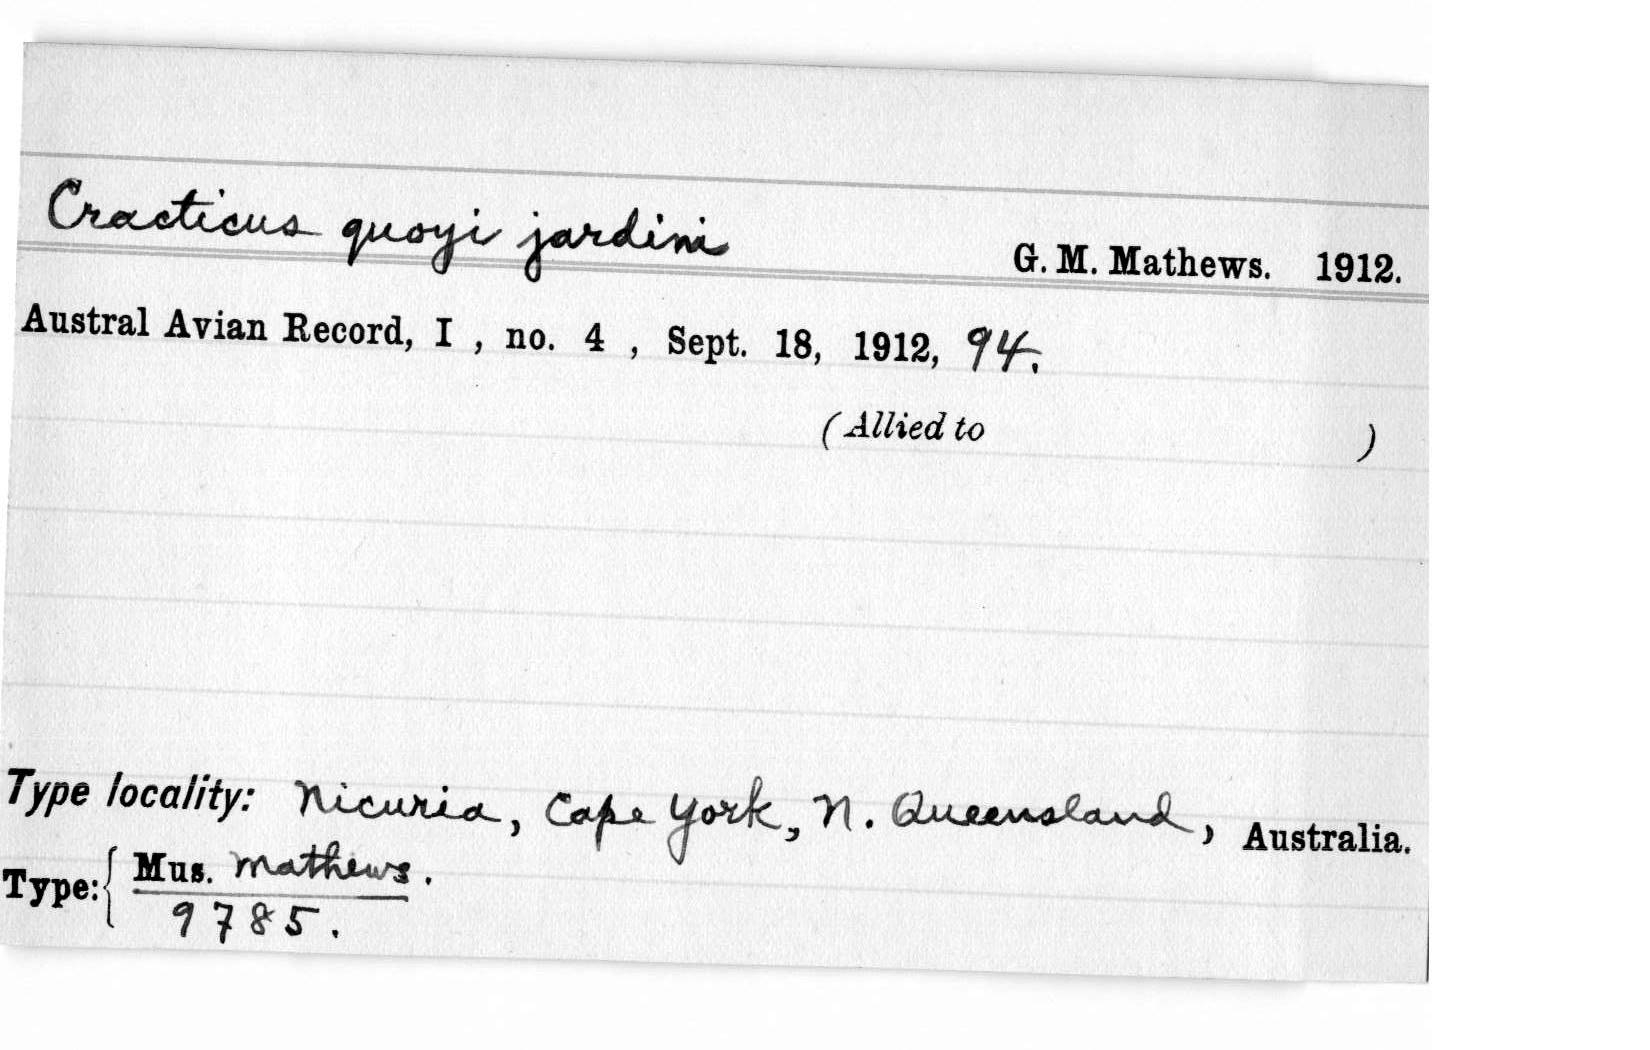 Cracticus quoyi jardini G. M. Mathews. 1912.
Austral Avian Record, I , no. 4 , Sept. 18, 1912, 94.
(Allied to )
Type locality: Nicuria, Cape York, N. Queensland, Australia.
Type: { Mus. Mathews.
9785.